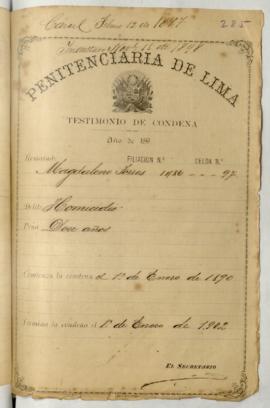 Carcel Febrero 12 de 1887
285
de 1898
PENITENCIARIA DE LIMA
TESTIMONIO DE CONDENA
Año de 189
Rematado FILIACION N.º CELDA N.º
Magdaleno 1986 - - - 97
Delito Homicidio
Pena Doce años
Comienza la condena el 1º de Enero de 1890
Termina la condena el 1º de Enero de 1902
EL SECRETARIO